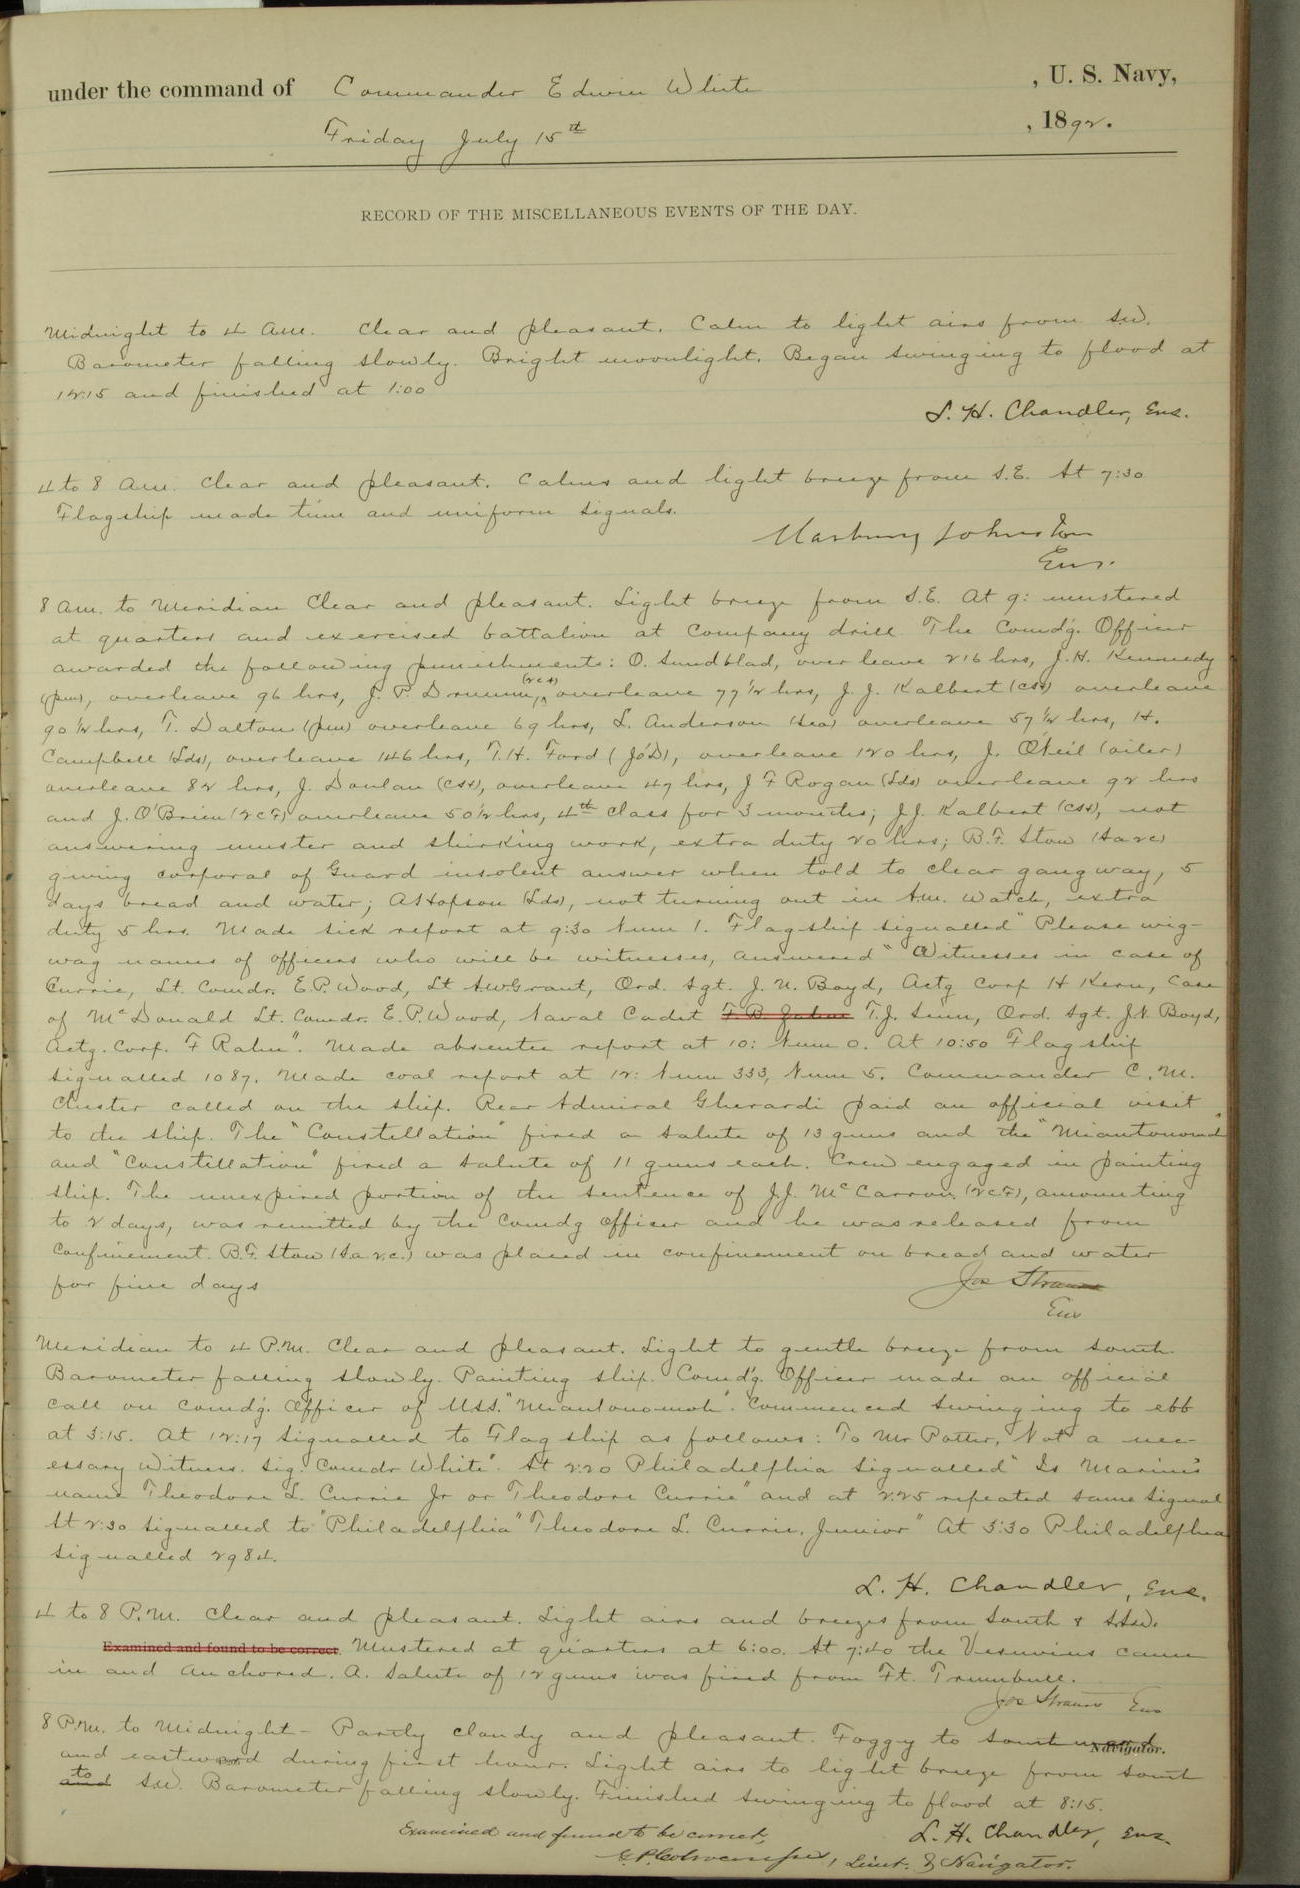 under the command of Commander Edwin White , U. S. Navy,
Friday July 15th , 1892.
RECORD OF THE MISCELLANEOUS EVENTS OF THE DAY.
Midnight to 4 A.M. Clear and pleasant. Calm to light airs from SW.
Barometer falling slowly. Bright moonlight. Began swinging to flood at
12:15 and finished at 1:00
L. H. Chandler, Ens.
4 to 8 A.M. Clear and pleasant. Calms and light breeze from S.E. At 7:30
Flagship made time and uniform signals.
Marbury Johnston
Ens.
8 A.M. to Meridian Clear and pleasant. Light breeze from S.E. At 9: mustered
at quarters and exercised battalion at Company drill The Comd'g. Officer
awarded the following punishments: O. Sundblad, over leave 216 hrs, J. H. Kennedy
(pm), overleave 96 hrs, J. P. Drumm, overleave 77 1/2 hrs, J. J. Kalbert (css) overleave
90 1/2 hrs, T. Dalton (pm) overleave 69 hrs, L. Anderson (sea) overleave 57 1/2 hrs, H.
Campbell (Lds), overleave 146 hrs, T. H. Ford (JoD), overleave 120 hrs, J. O'Neil (oiler)
overleave 82 hrs, J. Donlan (css), overleave 47 hrs, J F Rogan (Lds) overleave 92 hrs
and J. O'Brien (2cF) overleave 50 1/2 hrs, 4th class for 3 months; J.J. Kalbert (css), not
answering muster and shirking work, extra duty 20 hrs; B. F. Stow (Sa2c)
giving corporal of Guard insolent answer when told to clear gangway, 5
days bread and water; A Hopson (Lds), not turning out in A.M. Watch, extra
duty 5 hrs. Made sick report at 9:30 Num 1. Flagship signalled "Please wig-
wag names of officers who will be witnesses, answered "Witnesses in case of
Currie, Lt. Comdr. E. P. Wood, Lt A.W. Grant, Ord. Sgt. J. N. Boyd, Actg Corp H Kern, Case
of McDonald Lt. Comdr. E. P. Wood, Naval Cadet T. J. Senn, Ord. Sgt. J N Boyd,
Actg. Corp. F Rahn". Made absentee report at 10: Num 0. At 10:50 Flagship
signalled 1087. Made coal report at 12: Num 333, Num 5. Commander C. M.
Chester called on the ship. Rear Admiral Gherardi paid an official visit
to the ship. The "Constellation" fired a salute of 13 guns and the "Miantonomoh"
and "Constellation" fired a salute of 11 guns each. Crew engaged in painting
ship. The unexpired portion of the sentence of J. J. McCarron (2cF), amounting
to 2 days, was remitted by the Comdg Officer and he was released from
confinement. B. F. Stow (Sa 2c.) was placed in confinement on bread and water
for five days
Jos Strauss
Ens
Meridian to 4 P.M. Clear and pleasant. Light to gentle breeze from South
Barometer falling slowly. Painting ship. Comd'g. Officer made an official
call on Comd'g. Officer of U.S.S. "Miantonomoh". Commenced swinging to ebb
at 3:15. At 12:17 signalled to Flagship as follows: To Mr Potter, Not a nec-
essary Witness. Sig. Comdr White". At 2:20 Philadelphia signalled "Is Marine's
name Theodore L. Currie Jr or Theodore Currie" and at 2:25 repeated same signal
At 2:30 signalled to "Philadelphia" "Theodore L. Currie, Junior" At 3:30 Philadelphia
signalled 2984.
L. H. Chandler, Ens.
4 to 8 P.M. Clear and pleasant. Light airs and breezes from South & SSW.
Examined and found to be correct. Mustered at quarters at 6:00. At 7:40 the Vesuvius came
in and anchored. A salute of 12 guns was fired from Ft. Trumbull.
Jos Strauss Ens
8 P.M. to Midnight - Partly cloudy and pleasant. Foggy to southward
Navigator.
and eastward during first hour. Light airs to light breeze from South
to SW. Barometer falling slowly. Finished swinging to flood at 8:15.
L. H. Chandler, Ens.
Examined and found to be correct,
Lieut. & Navigator.